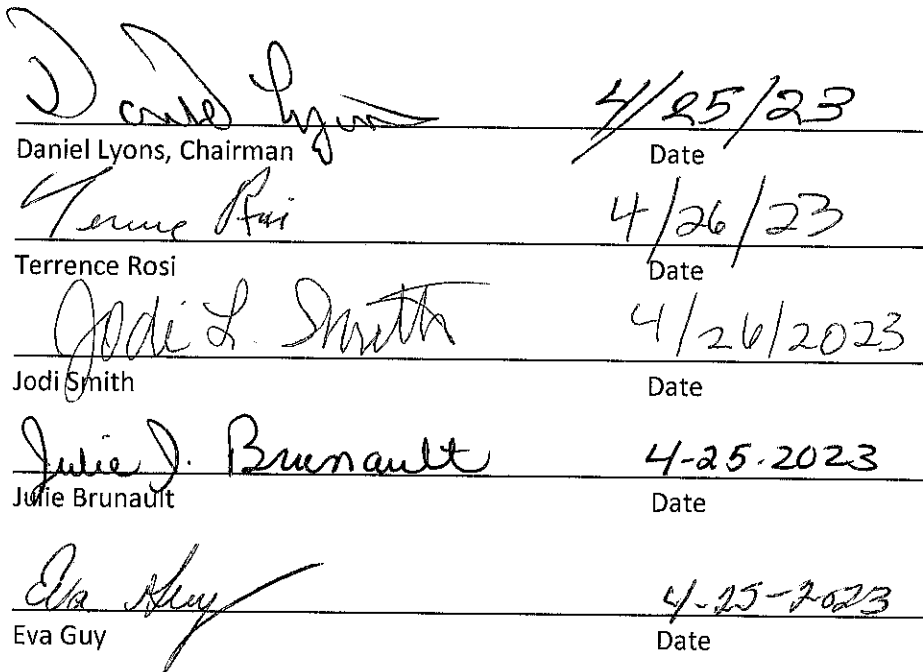 Daniel Lyons 4/25/23
Daniel Lyons, Chairman Date
4/26/23
Terrence Rosi Date
Jodi L. Smith 4/26/2023
Jodi Smith Date
Julie J. Brunault 4-25-2023
Julie Brunault Date
Eva Guy 4-25-2023
Eva Guy Date